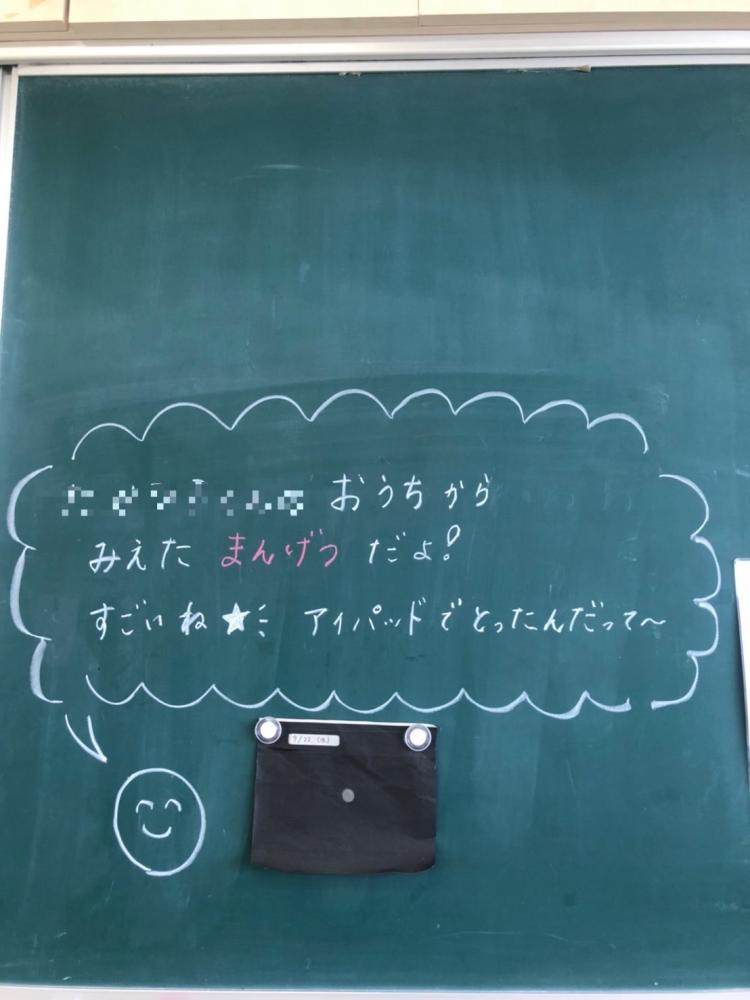 おうちから
みえた まんげつ だよ!
すごいね★ アイパッドでとったんだって〜